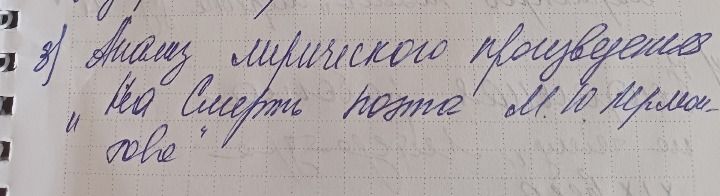 3) Анализ лирического произведения
„На Смерть поэта М. Ю Лермон-
това"